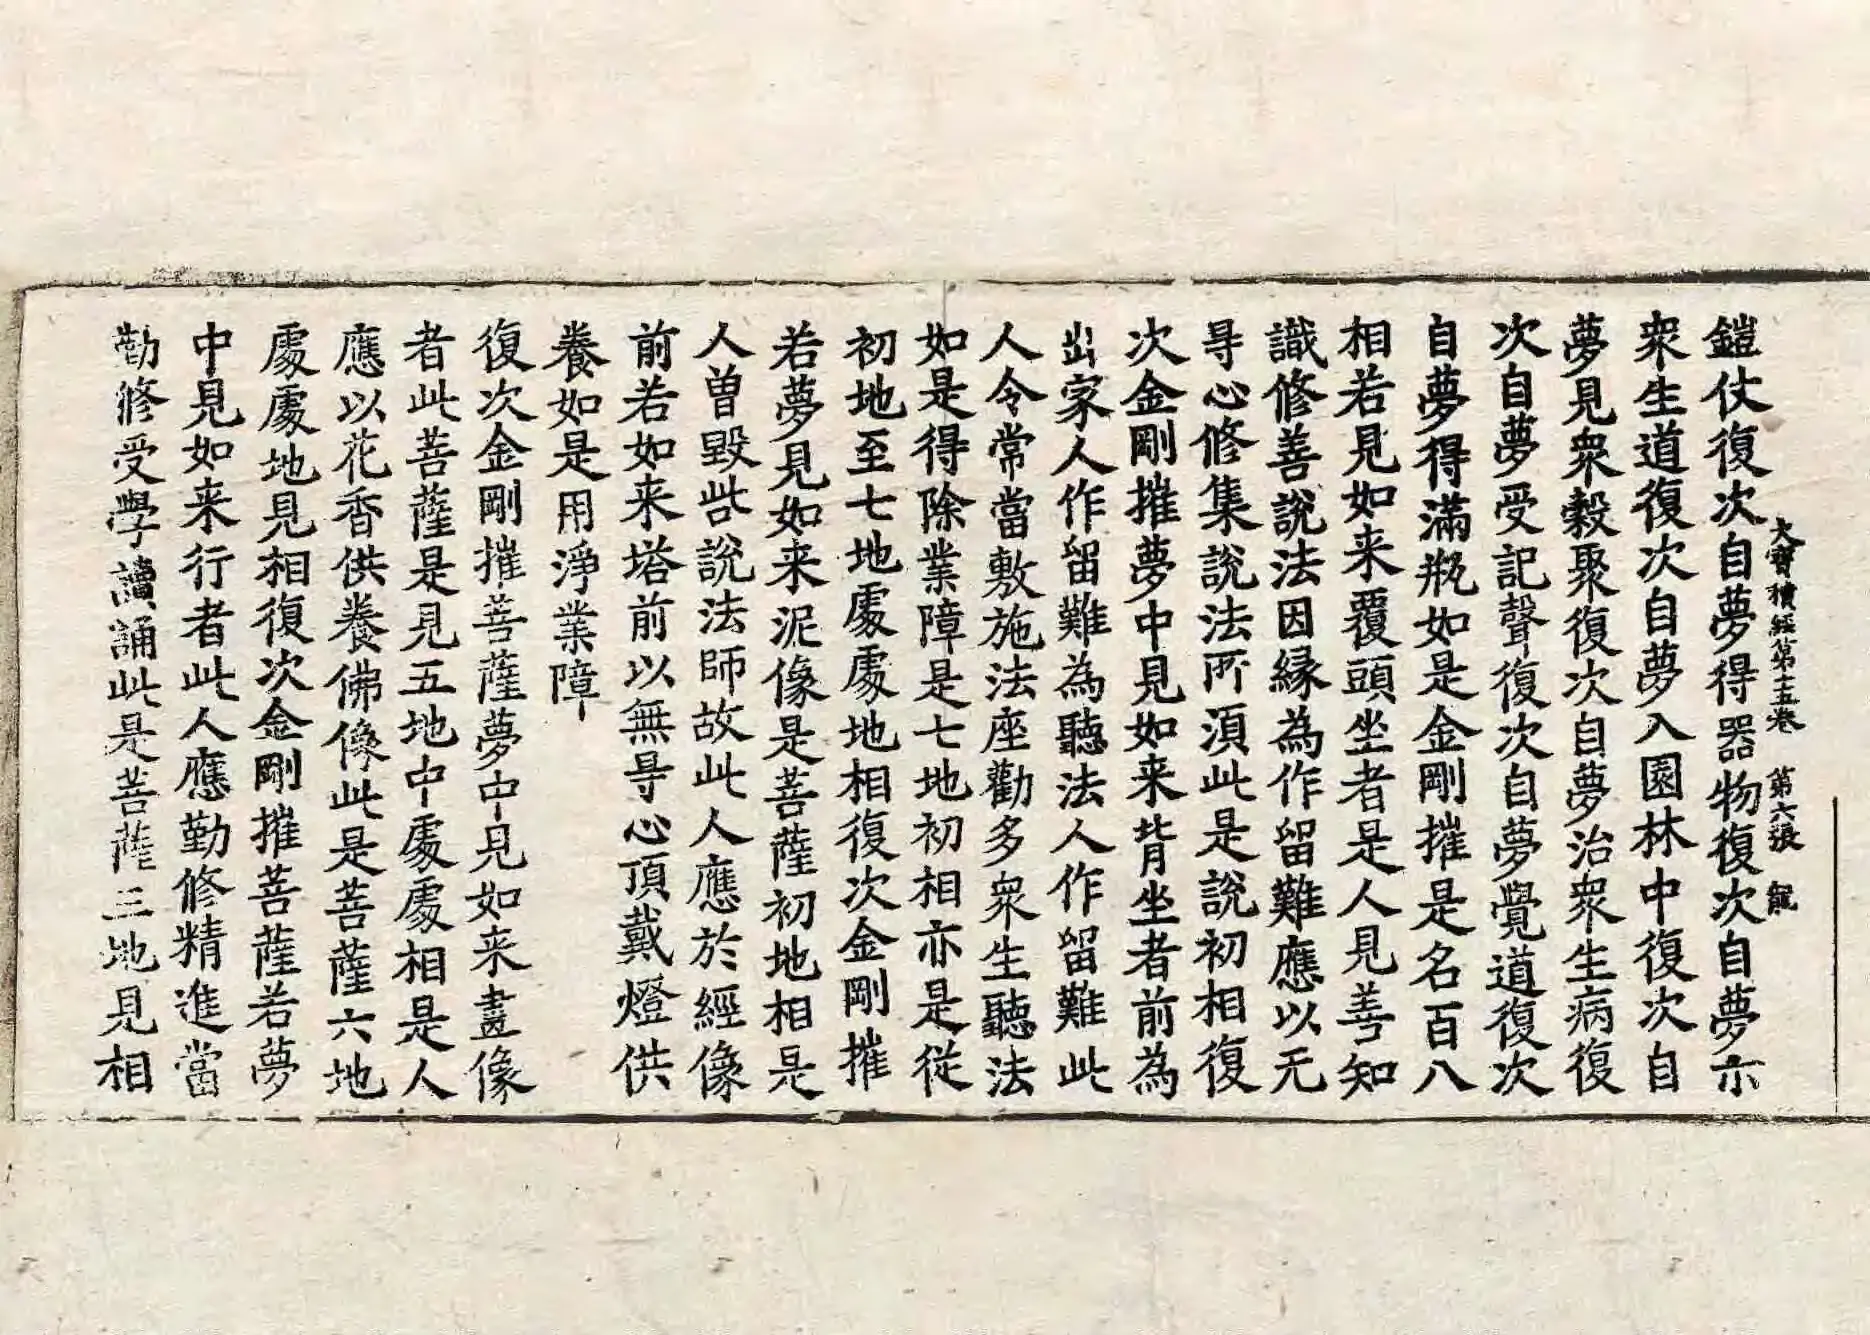 大寶積經第十五卷　第六張　龍
鎧仗復次自夢得器物復次自夢示
衆生道復次自夢入園林中復次自
夢見衆穀聚復次自夢治衆生病復
次自夢受記聲復次自夢覺道復次
自夢得滿瓶如是金剛摧是名百八
相若見如来覆頭坐者是人見善知
識修善說法因緣為作留難應以无
㝵心修集說法所湏此是說初相復
次金剛摧夢中見如来背坐者前為
出家人作留難為聽法人作留難此
人令常當敷施法座勸多衆生聽法
如是得除業障是七地初相亦是從
初地至七地處處地相復次金剛摧
若夢見如来泥像是菩薩初地相是
人曽毀呰說法師故此人應於經像
前若如来塔前以無㝵心頂戴燈供
養如是用淨業障
復次金剛摧菩薩夢中見如来畫像
者此菩薩是見五地中處處相是人
應以花香供養佛像此是菩薩六地
處處地見相復次金剛摧菩薩若夢
中見如来行者此人應勤修精進當
勤修受學讀誦此是菩薩三地見相